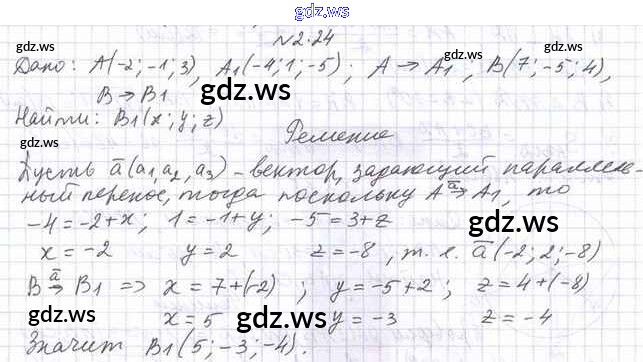 gdz.ws
№2.24
gdz.ws gdz.ws
Дано: A(-2; -1; 3), A₁(-4; 1; -5); A → A₁, B(7; -5; 4),
gdz.ws
B → B₁
Найти: B₁(x; y; z)
gdz.ws
Решение
Пусть a̅(a₁, a₂, a₃) - вектор, задающий параллель-
ный перенос, тогда поскольку A →a̅ A₁, то
-4 = -2 + x; 1 = -1 + y; -5 = 3 + z
gdz.ws
x = -2 y = 2 z = -8, т. е. a̅(-2; 2; -8)
B →a̅ B₁ => x = 7 + (-2); y = -5 + 2; z = 4 + (-8)
gdz.ws gdz.ws gdz.ws
x = 5 y = -3 z = -4
Значит B₁(5; -3; -4).